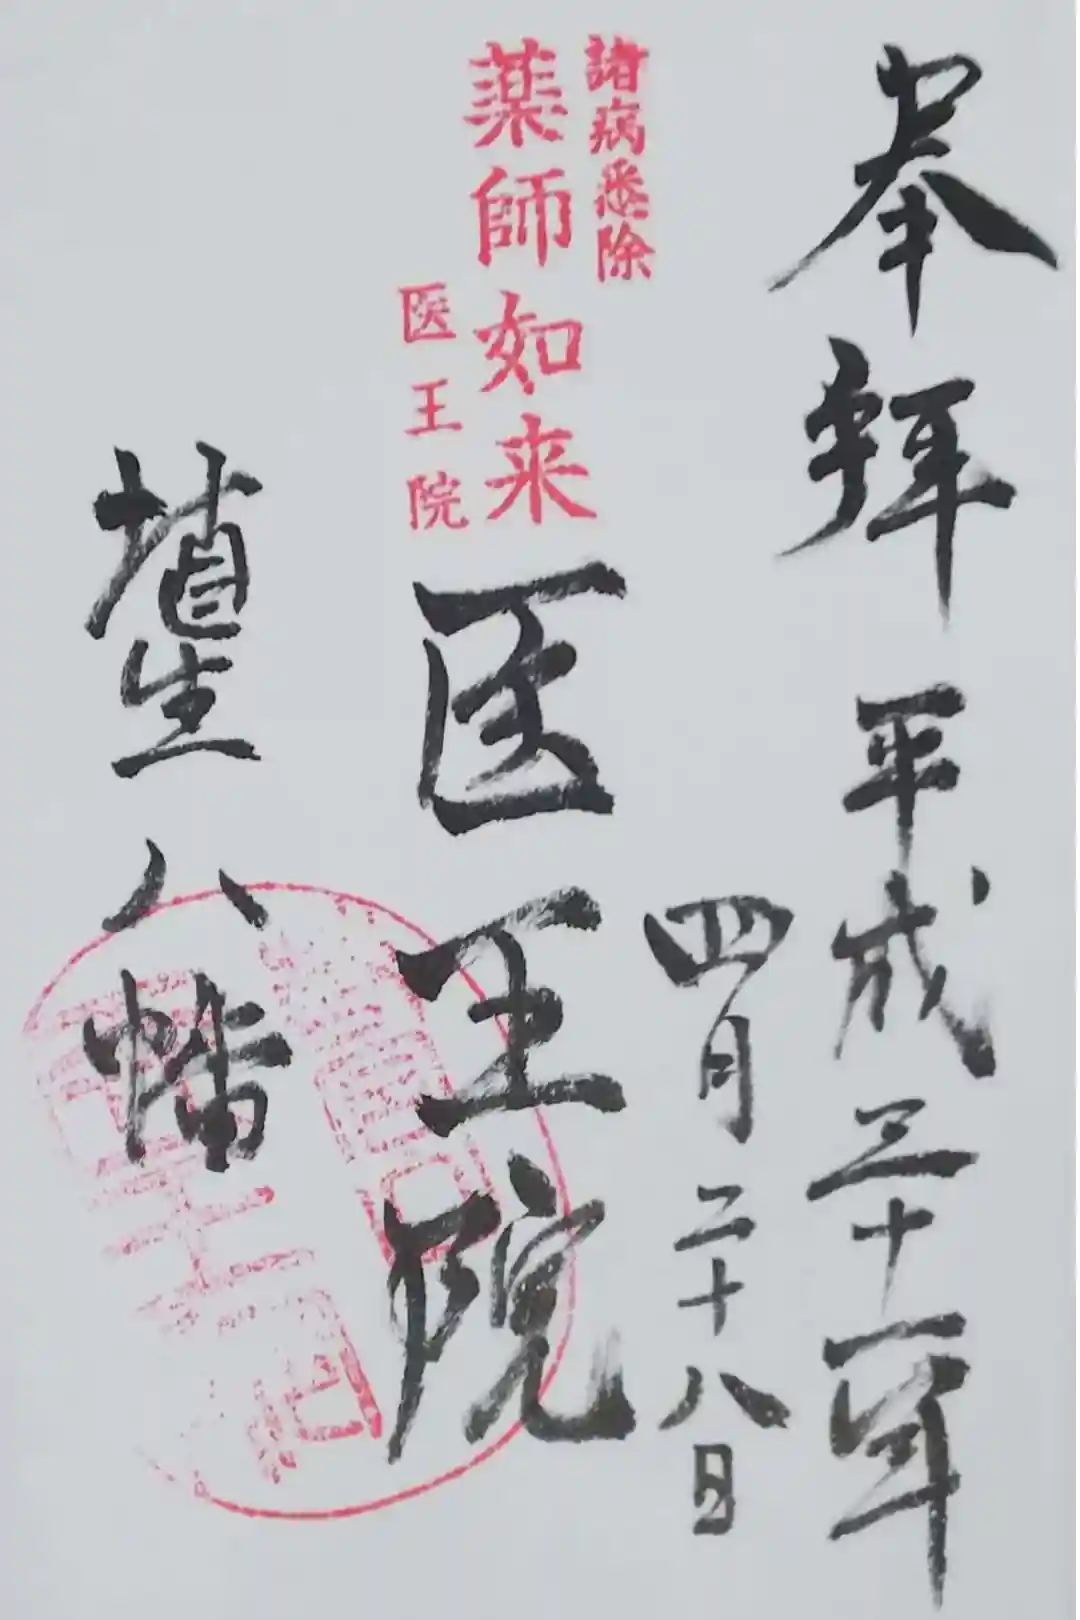 奉拝
平成三十一年
四月二十八日
諸病悉除
薬師如来
医王院
医王院
埴生八幡